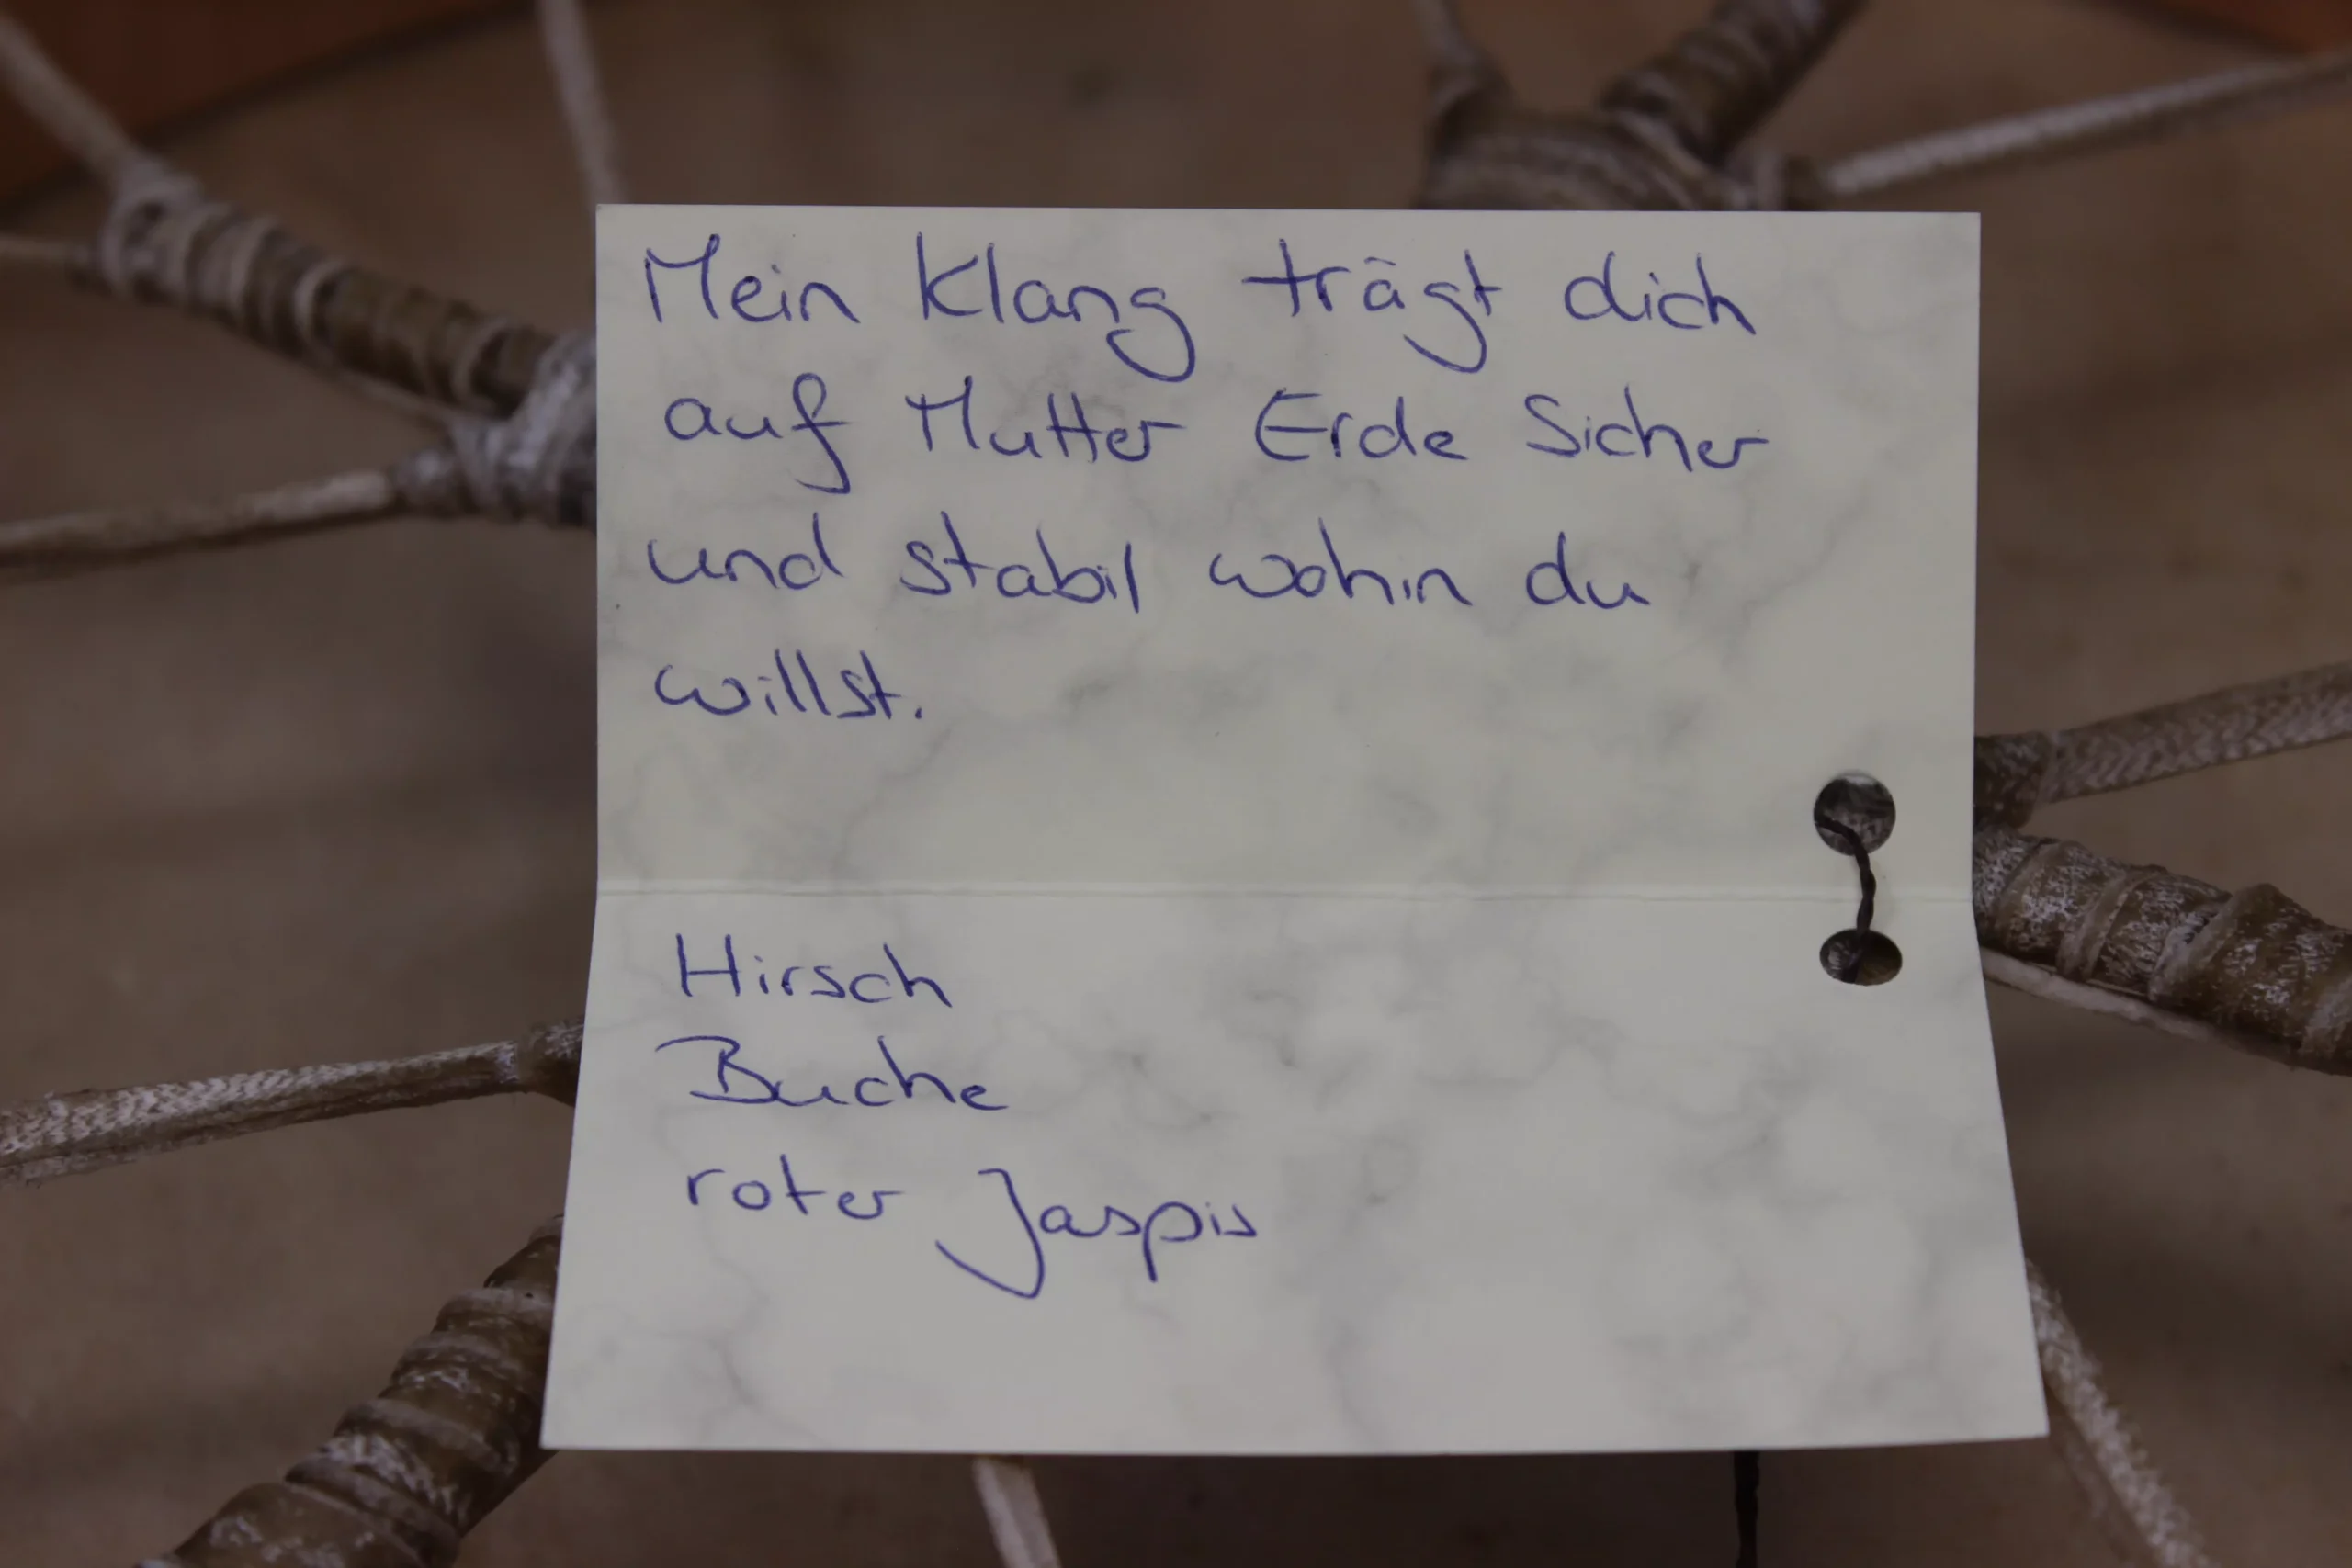 Mein Klang trägt dich
auf Mutter Erde Sicher
und stabil wohin du
willst.
Hirsch
Buche
roter Jaspis